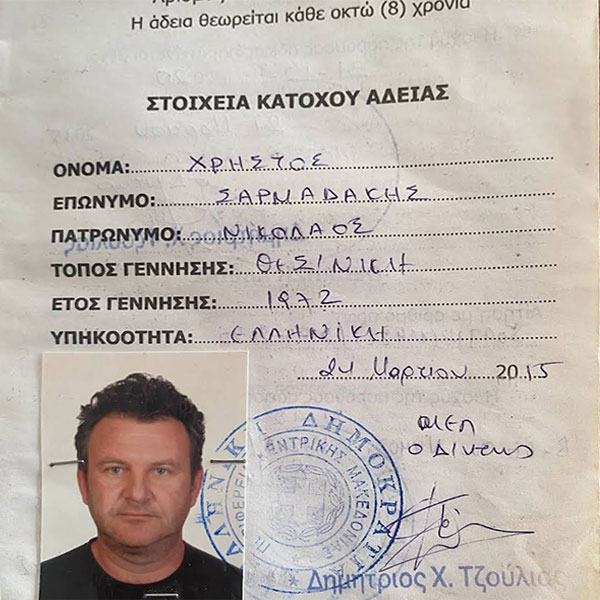 Η άδεια θεωρείται κάθε οκτώ (8) χρόνια
ΣΤΟΙΧΕΙΑ ΚΑΤΟΧΟΥ ΑΔΕΙΑΣ
ΟΝΟΜΑ: ΧΡΗΣΤΟΣ
ΕΠΩΝΥΜΟ: ΣΑΡΜΑΔΑΚΗΣ
ΠΑΤΡΩΝΥΜΟ: ΝΙΚΟΛΑΟΣ
ΤΟΠΟΣ ΓΕΝΝΗΣΗΣ: ΘΕΣ/ΝΙΚΗ
ΕΤΟΣ ΓΕΝΝΗΣΗΣ: 1972
ΥΠΗΚΟΟΤΗΤΑ: ΕΛΛΗΝΙΚΗ
Μαρτίου 2015
ΕΛΛΗΝΙΚΗ ΔΗΜΟΚΡΑΤΙΑ
ΠΕΡΙΦΕΡΕΙΑ ΚΕΝΤΡΙΚΗΣ ΜΑΚΕΔΟΝΙΑΣ
Δημήτριος Χ. Τζούλιας